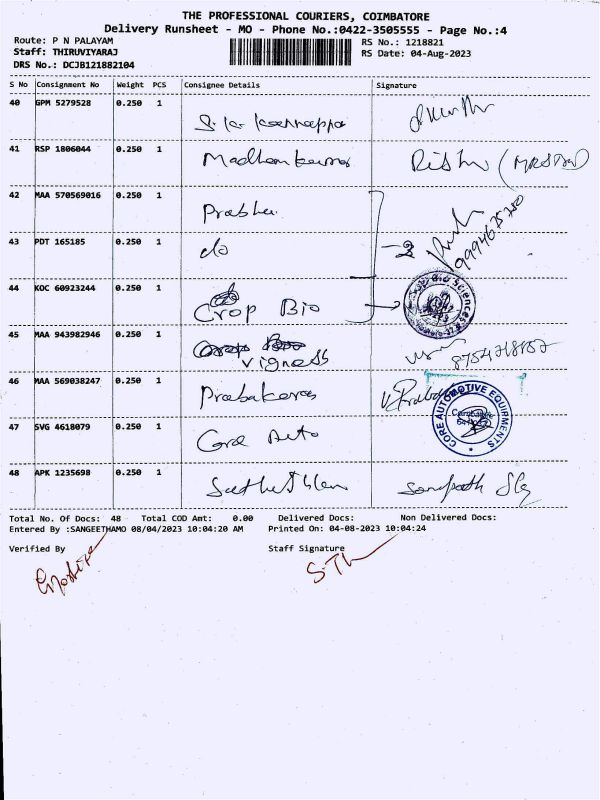 THE PROFESSIONAL COURIERS, COIMBATORE
Delivery Runsheet - MO - Phone No.:0422-3505555 - Page No.:4
Route: P N PALAYAM RS No.: 1218821
Staff: THIRUVIYARAJ RS Date: 04-Aug-2023
DRS No.: DCJB121882104
S No Consignment No Weight PCS Consignee Details Signature
40 GPM 5279528 0.250 1
41 RSP 1806044 0.250 1 Madhan kumar
42 MAA 570569016 0.250 1 Prabhu
43 PDT 165185 0.250 1 do
9994675780
44 KOC 60923244 0.250 1 Crop Bio
45 MAA 943982946 0.250 1 Vigness
46 MAA 569038247 0.250 1 Prabakaran
CORE AUTOMOTIVE EQUIPMENTS
47 SVG 4618079 0.250 1 Core Auto
48 APK 1235698 0.250 1 Sampath
Total No. Of Docs: 48 Total COD Amt: 0.00 Delivered Docs: Non Delivered Docs:
Entered By :SANGEETHAMO 08/04/2023 10:04:20 AM Printed On: 04-08-2023 10:04:24
Verified By Staff Signature